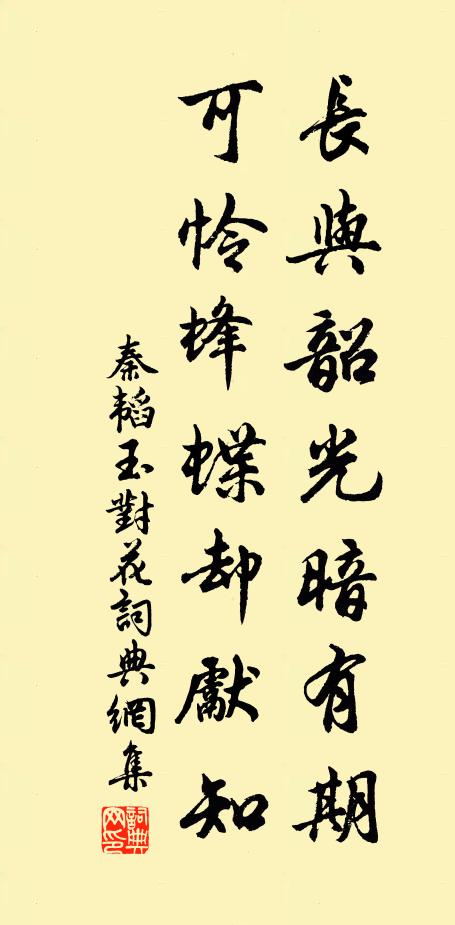 長與韶光暗有期
可怜蜂蝶却獻知
秦韜玉對花詞典網集
詞典网印